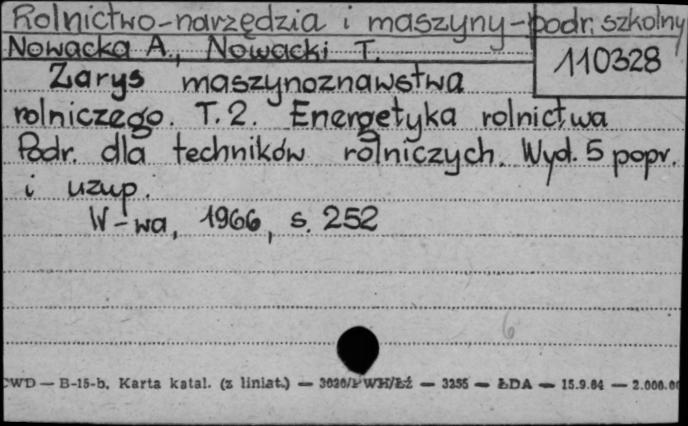 Rolnictwo-narzędzia i maszyny-podr. szkolny
Nowacka A., Nowacki T.
110328
Zarys maszynoznawstwa
rolniczego. T. 2. Energetyka rolnictwa
Podr. dla techników rolniczych. Wyd. 5 popr.
i uzup.
W-wa, 1966, s. 252
6
CWD — B-15-b. Karta katal. (z liniat.) — 3620/PWH/Łź — 3255 — ŁDA — 15.9.64 — 2.000.00